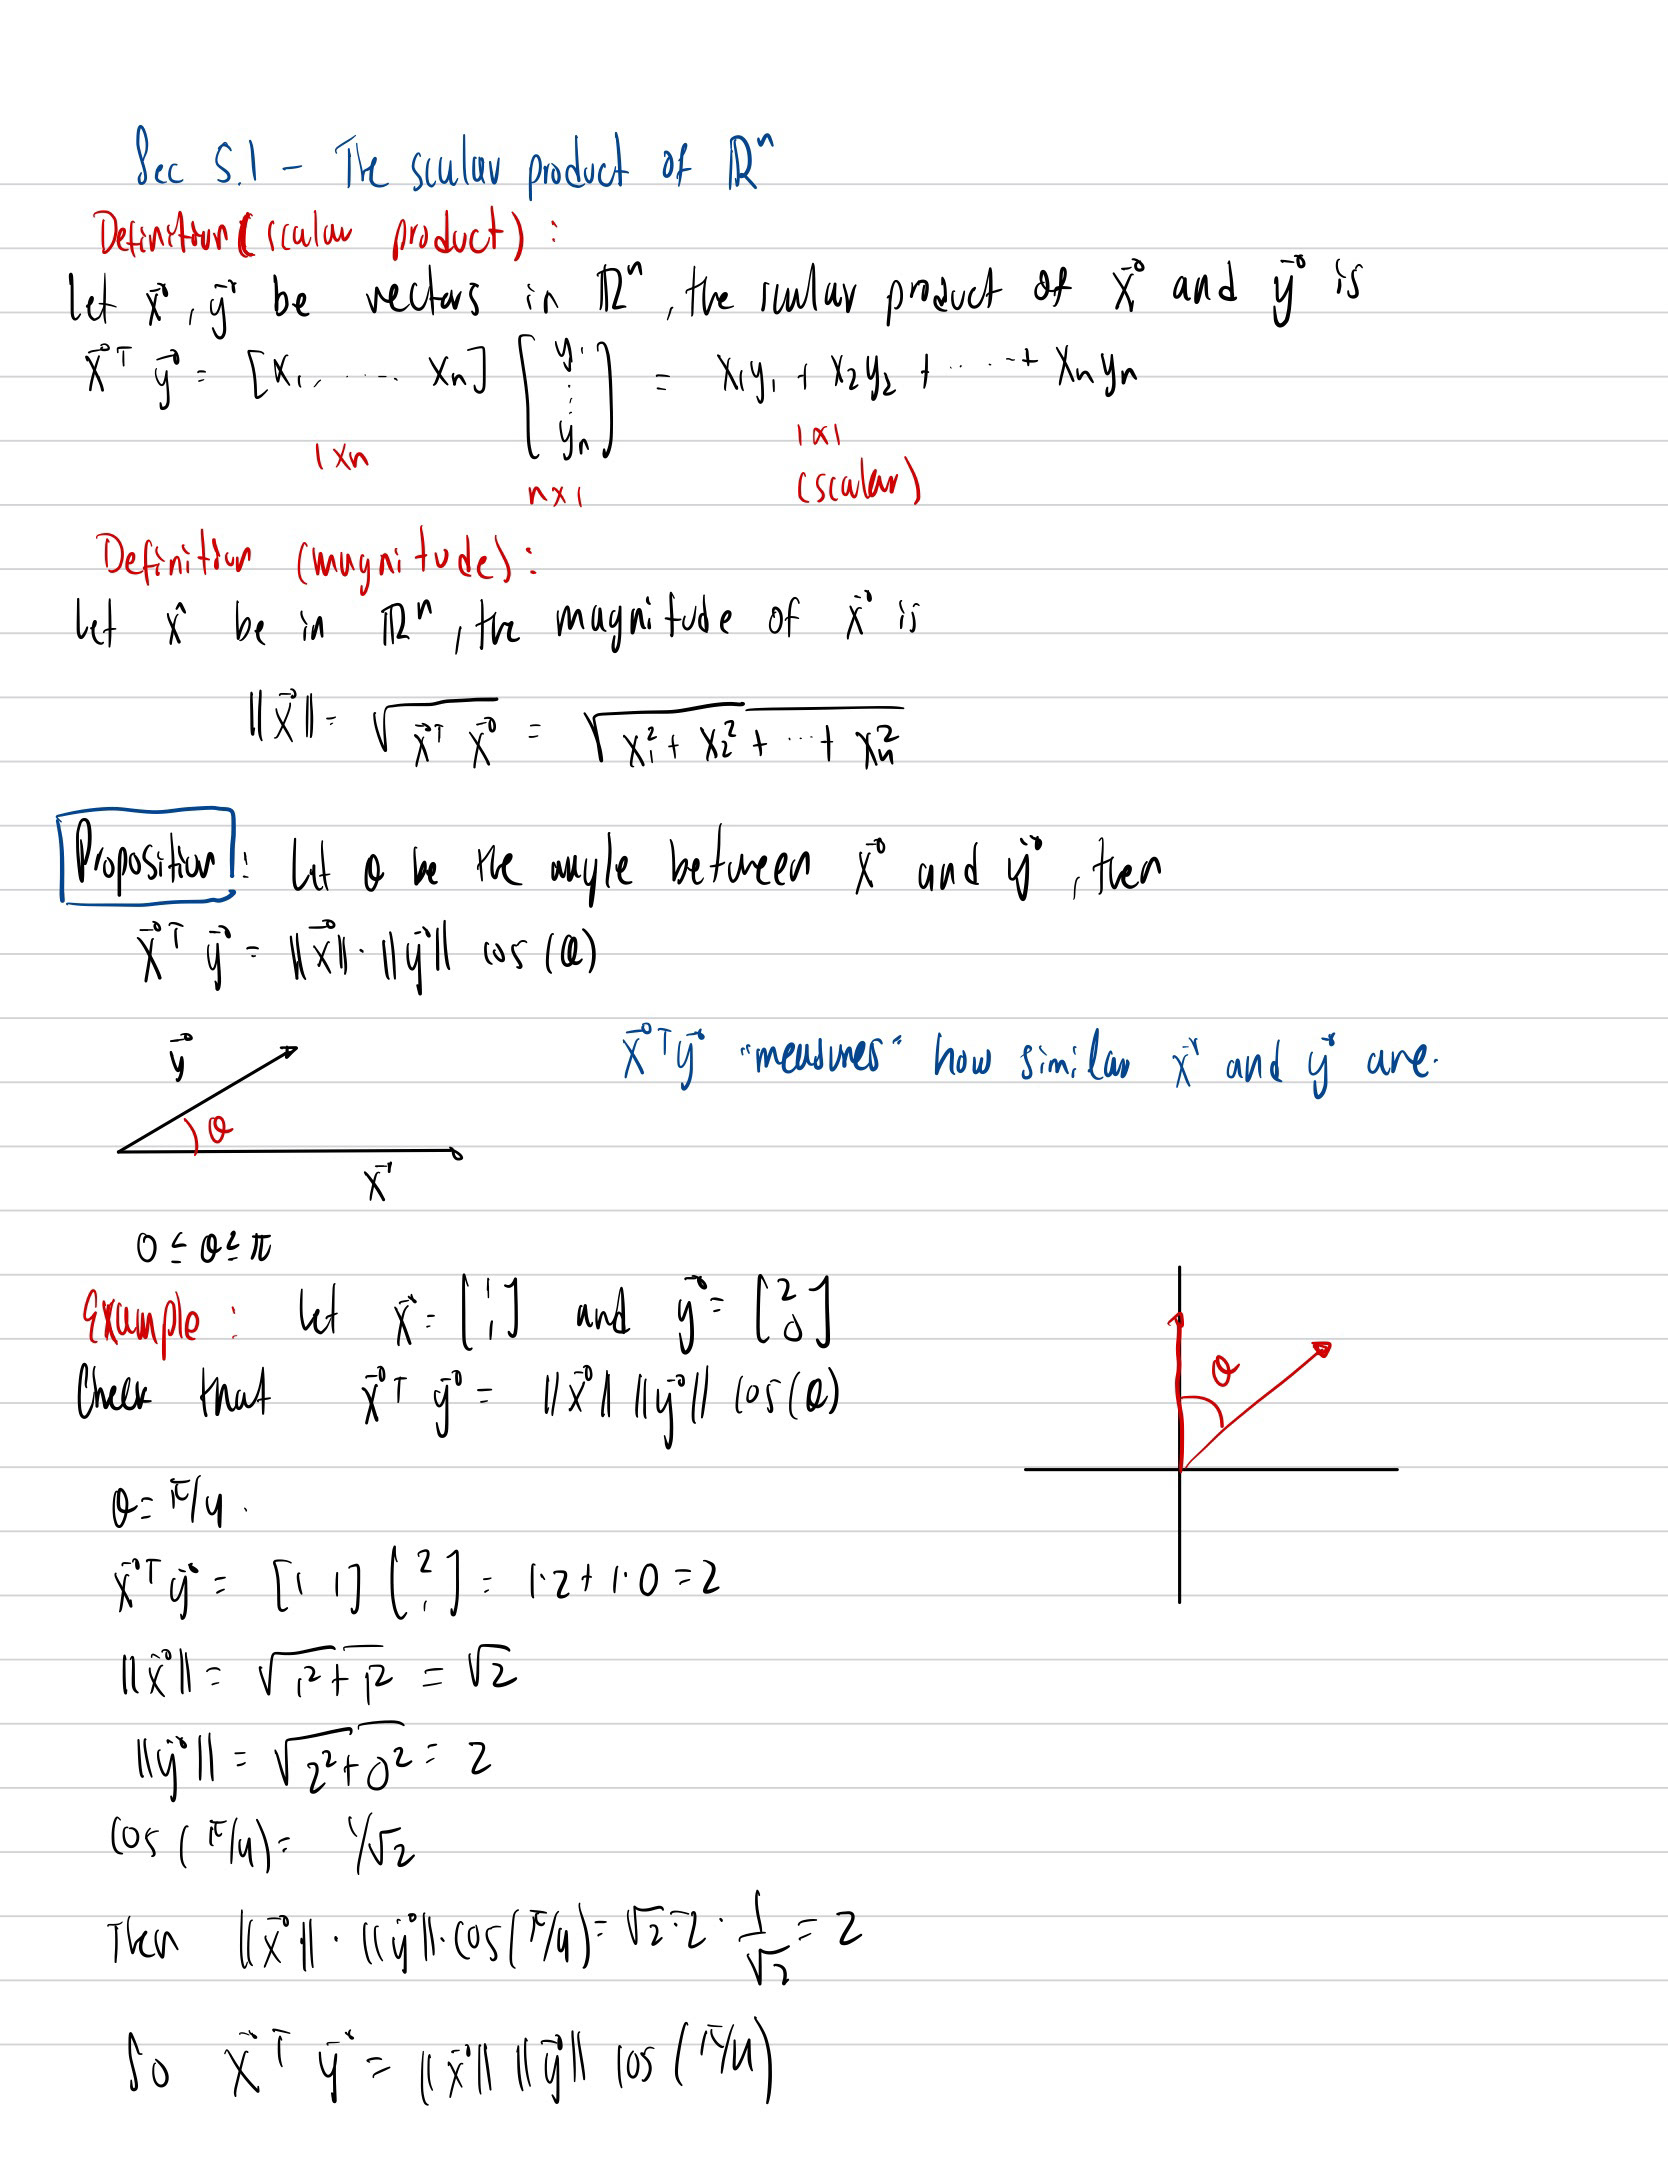 Sec 5.1 - The scalar product of ℝⁿ
Definition (scalar product) :
Let x⃗, y⃗ be vectors in ℝⁿ, the scalar product of x⃗ and y⃗ is
x⃗ᵀ y⃗ = [x₁, ..... xₙ] [y₁ ⋮ yₙ] = x₁y₁ + x₂y₂ + ..... + xₙyₙ
1×n n×1 1×1
(scalar)
Definition (magnitude) :
Let x⃗ be in ℝⁿ, the magnitude of x⃗ is
‖x⃗‖ = √(x⃗ᵀ x⃗) = √(x₁² + x₂² + ... + xₙ²)
Proposition : Let θ be the angle between x⃗ and y⃗, then
x⃗ᵀ y⃗ = ‖x⃗‖ · ‖y⃗‖ cos(θ)
x⃗ᵀy⃗ "measures" how similar x⃗ and y⃗ are.
y⃗
θ
x⃗
0 ≤ θ ≤ π
Example : Let x⃗ = [1 1] and y⃗ = [2 0]
Check that x⃗ᵀ y⃗ = ‖x⃗‖ ‖y⃗‖ cos(θ)
θ
θ = π/4.
x⃗ᵀ y⃗ = [1 1] [2 1] = 1·2 + 1·0 = 2
‖x⃗‖ = √(1² + 1²) = √2
‖y⃗‖ = √(2² + 0²) = 2
cos(π/4) = 1/√2
Then ‖x⃗‖ · ‖y⃗‖ · cos(π/4) = √2 · 2 · 1/√2 = 2
So x⃗ᵀ y⃗ = ‖x⃗‖ ‖y⃗‖ cos(π/4)